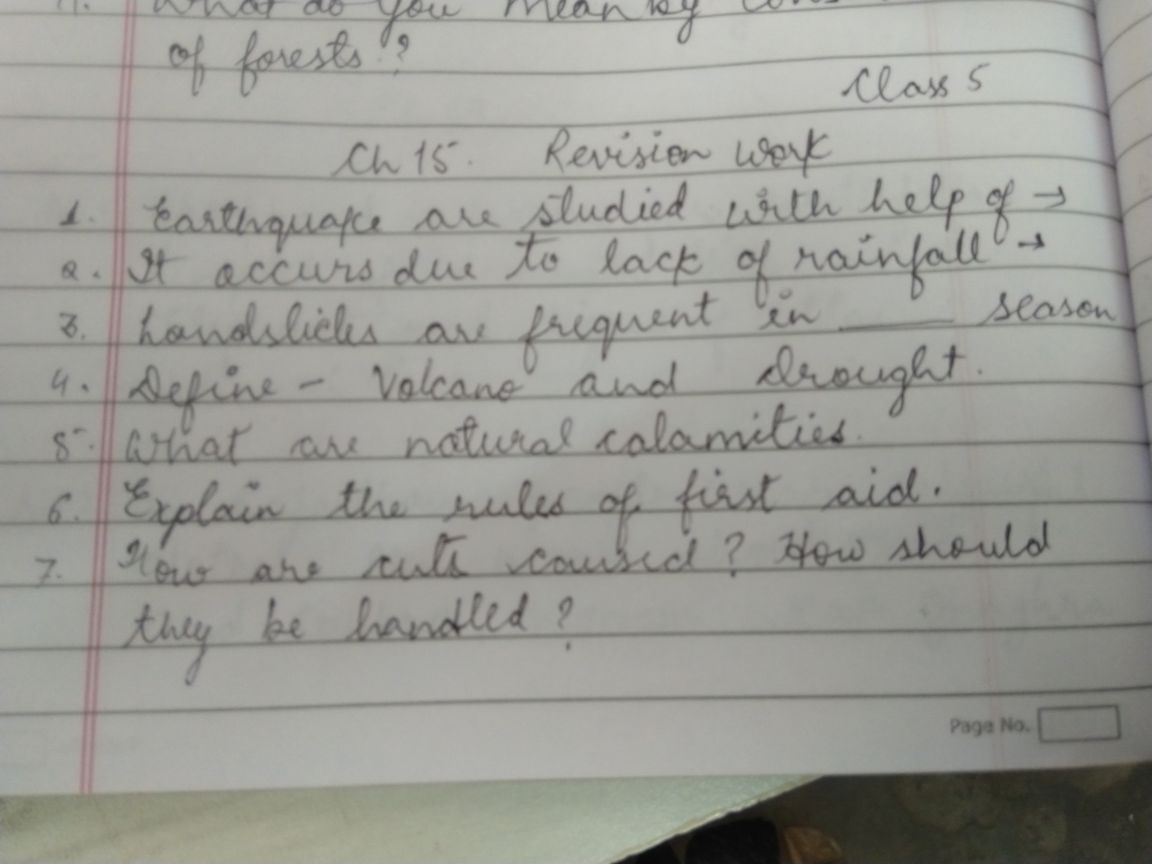 What do you mean by
of forests?
Class 5
Ch 15. Revision work
1. Earthquake are studied with help of →
2. It occurs due to lack of rainfall →
3. Landslides are frequent in ____ season
4. Define - Volcano and Drought.
5. What are natural calamities.
6. Explain the rules of first aid.
7. How are cuts caused? How should
they be handled?
Page No.